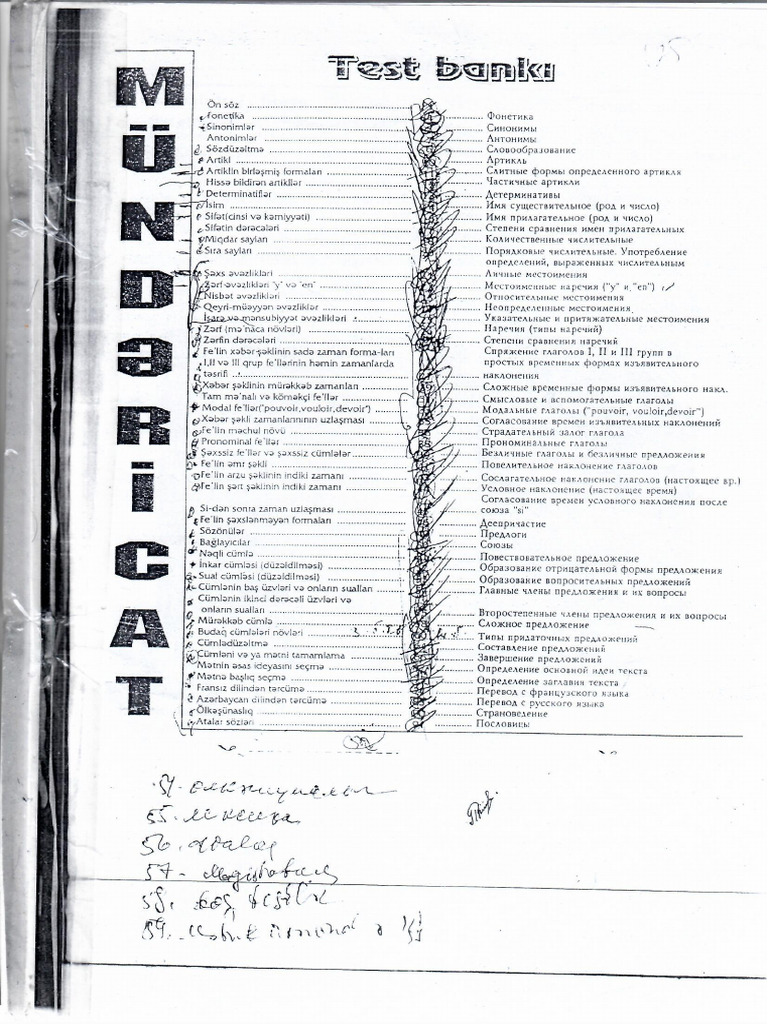 MÜNDƏRİCAT
Test bankı
Ön söz ........ 
Fonetika ........ Фонетика
Sinonimlər ........ Синонимы
Antonimlər ........ Антонимы
Sözdüzəltmə ........ Словообразование
Artikl ........ Артикль
Artiklin birləşmiş formaları ........ Слитные формы определенного артикля
Hissə bildirən artikllər ........ Частичные артикли
Determinatiflər ........ Детерминативы
İsim ........ Имя существительное (род и число)
Sifət(cinsi və kəmiyyəti) ........ Имя прилагательное (род и число)
Sifətin dərəcələri ........ Степени сравнения имен прилагательных
Miqdar sayları ........ Количественные числительные
Sıra sayları ........ Порядковые числительные. Употребление
определений, выраженных числительным
Şəxs əvəzlikləri ........ Личные местоимения
Zərf-əvəzlikləri 'y' və 'en' ........ Местоименные наречия ("y" и "en")
Nisbət əvəzlikləri ........ Относительные местоимения
Qeyri-müəyyən əvəzliklər ........ Неопределенные местоимения
İşarə və mənsubiyyət əvəzlikləri ........ Указательные и притяжательные местоимения
Zərf (mə'naca növləri) ........ Наречия (типы наречий)
Zərfin dərəcələri ........ Степени сравнения наречий
Fe'lin xəbər şəklinin sadə zaman forma-ları ........ Спряжение глаголов I, II и III групп в
I,II və III qrup fe'llərinin həmin zamanlarda простых временных формах изъявительного
təsrifi ........ наклонения
Xəbər şəklinin mürəkkəb zamanları ........ Сложные временные формы изъявительного накл.
Tam mə'nalı və köməkçi fe'llər ........ Смысловые и вспомогательные глаголы
Modal fe'llər("pouvoir,vouloir,devoir") ........ Модальные глаголы ("pouvoir, vouloir,devoir")
Xəbər şəkli zamanlarınının uzlaşması ........ Согласование времен изъявительных наклонений
Fe'lin məchul növü ........ Страдательный залог глагола
Pronominal fe'llər ........ Прономинальные глаголы
Şəxssiz fe'llər və şəxssiz cümlələr ........ Безличные глаголы и безличные предложения
Fe'lin əmr şəkli ........ Повелительное наклонение глаголов
Fe'lin arzu şəklinin indiki zamanı ........ Сослагательное наклонение глаголов (настоящее вр.)
Fe'lin şərt şəklinin indiki zamanı ........ Условное наклонение (настоящее время)
Согласование времен условного наклонения после
Si-dən sonra zaman uzlaşması ........ союза "si"
Fe'lin şəxslənməyən formaları ........ Деепричастие
Sözönülər ........ Предлоги
Bağlayıcılar ........ Союзы
Nəqli cümlə ........ Повествовательное предложение
İnkar cümləsi (düzəldilməsi) ........ Образование отрицательной формы предложения
Sual cümləsi (düzəldilməsi) ........ Образование вопросительных предложений
Cümlənin baş üzvləri və onların sualları ........ Главные члены предложения и их вопросы
Cümlənin ikinci dərəcəli üzvləri və
onların sualları ........ Второстепенные члены предложения и их вопросы
Mürəkkəb cümlə ........ Сложное предложение
Budaq cümlələri növləri ........ Типы придаточных предложений
Cümlədüzəltmə ........ Составление предложений
Cümləni və ya mətni tamamlama ........ Завершение предложений
Mətnin əsas ideyasını seçmə ........ Определение основной идеи текста
Mətnə başlıq seçmə ........ Определение заглавия текста
Fransız dilindən tərcümə ........ Перевод с французского языка
Azərbaycan dilindən tərcümə ........ Перевод с русского языка
Ölkəşünaslıq ........ Страноведение
Atalar sözləri ........ Пословицы
54.
55. лексика
56.
57.
58.
59.